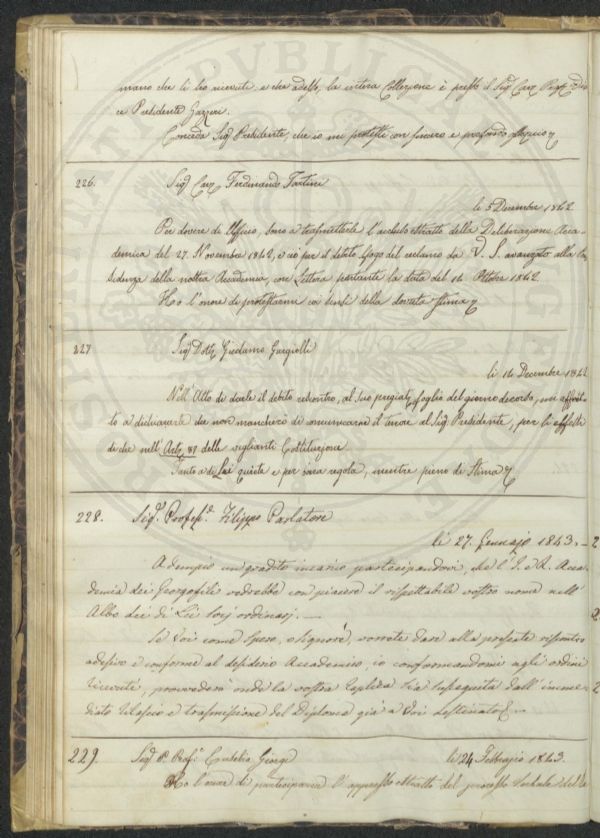 mano che li ho ricevuti, e che adesso, la intera Collezione è presso il Sig. Cav. Prof. Vi
ce Presidente Gazzeri.
Conceda Sig. Presidente, che io mi protesti con sincero e profondo
226. Sig. Cav. Ferdinando Tartini
li 5 Decembre 1842
Per dovere di Uffizio, sono a trasmetterle l'accluso estratto della Deliberazione Acca-
demica del 27. Novembre 1842, e ciò per il debito sfogo del reclamo da V. S. avanzato alla
sidenza della nostra Accademia, con Lettera portante la data del 14 Ottobre 1842.
Ho l'onore di protestarmi coi sensi della dovuta stima
227 Sig. Dott. Girolamo Gargiolli
li 14 Decembre 1842
Nell'Atto di darle il debito riscontro, al suo pregiato foglio del giorno decorso, mi affret-
to a dichiararle che non mancherò di comunicarne il tenore al Sig. Presidente, per li effetti
di che nell'Art. 87 delle veglianti Costituzione
Tanto a di Lei quiete e per sua regola, mentre pieno di stima
228. Sig. Profess. Filippo Parlatore
li 27. Gennajo 1843.
Adempio un gradito incarico partecipandovi, che l'I. e R. Acca-
demia dei Georgofili vedrebbe con piacere il rispettabile vostro nome nell'
Albo dei di Lei Socj ordinarj.
Se Voi come spero, o Signore, vorrete dare alla presente riscontro
adesivo e conforme al desiderio Accademico, io conformandomi agli ordini
ricevuti, provvederò onde la vostra Replica sia susseguita dall'imme-
diato rilascio e trasmissione del Diploma già a Voi destinato
229. Sig. P. Prof. Eusebio Giorgi li 24 Febbrajo 1843.
Ho l'onore di parteciparvi l'appresso estratto del processo verbale della